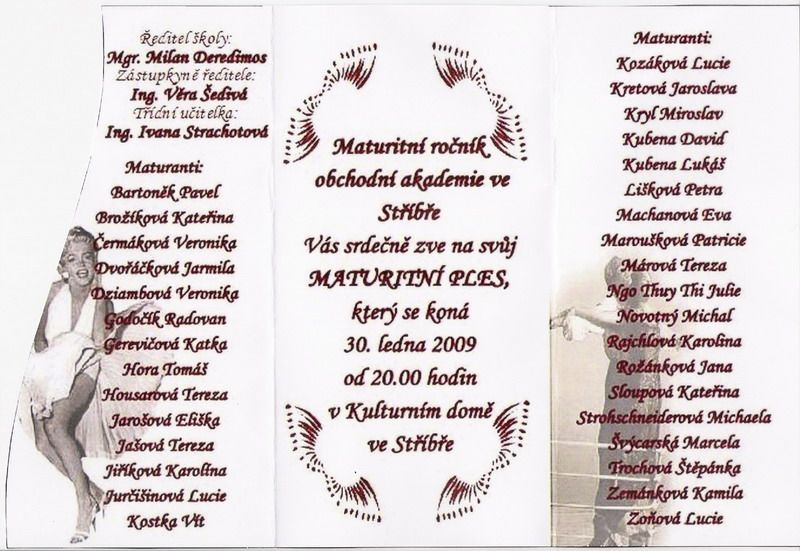 Ředitel školy:
Mgr. Milan Deredimos
Zástupkyně ředitele:
Ing. Věra Šedivá
Třídní učitelka:
Ing. Ivana Strachotová
Maturanti:
Bartoněk Pavel
Brožíková Kateřina
Čermáková Veronika
Dvořáčková Jarmila
Dziambová Veronika
Godočík Radovan
Gerevičová Katka
Hora Tomáš
Housarová Tereza
Jarošová Eliška
Jašová Tereza
Jiříková Karolína
Jurčišinová Lucie
Kostka Vít
Maturitní ročník
obchodní akademie ve
Stříbře
Vás srdečně zve na svůj
MATURITNÍ PLES,
který se koná
30. ledna 2009
od 20.00 hodin
v Kulturním domě
ve Stříbře
Maturanti:
Kozáková Lucie
Kretová Jaroslava
Kryl Miroslav
Kubena David
Kubena Lukáš
Lišková Petra
Machanová Eva
Maroušková Patricie
Márová Tereza
Ngo Thuy Thi Julie
Novotný Michal
Rajchlová Karolina
Rožánková Jana
Sloupová Kateřina
Strohschneiderová Michaela
Švýcarská Marcela
Trochová Štěpánka
Zemánková Kamila
Zoňová Lucie